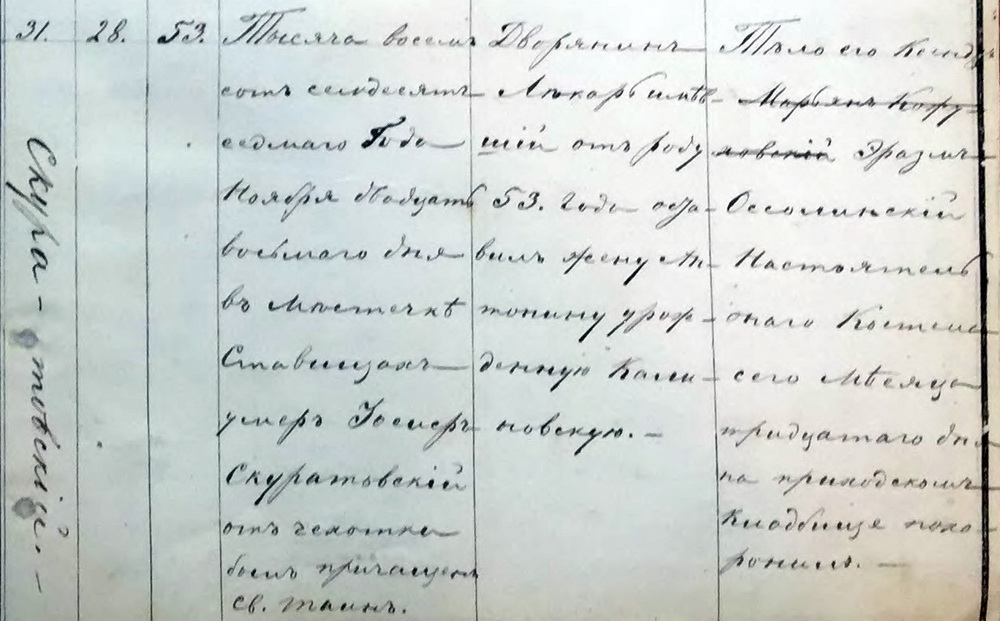 31. 28. 53.
Скура-товскій.-
Тысяча восемь
сотъ семдесятъ
седмаго Года
Ноября двадцать
восьмаго дня
въ Мѣстечкѣ
Ставищахъ
умеръ Іосифъ
Скуратовскій
отъ чахотки
былъ причащенъ
св. таинъ.
Дворянинъ
Лѣкарь имѣв-
шій отъ роду
53. года оста-
вилъ жену Ан-
тонину урож-
денную Кали-
новскую.-
Тѣло его Ксендзъ
Марьянъ Кору-
ковскій Эразмъ
Оссолинскій
Настоятель
онаго Костела
сего Мѣсяца
тридцатаго дня
на приходскомъ
кладбище похо-
ронилъ.-